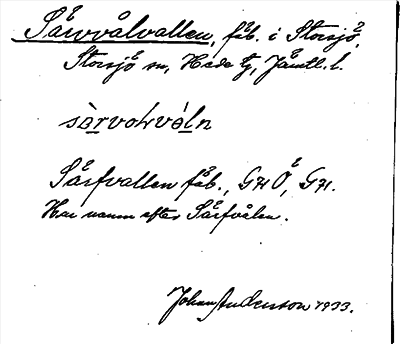 Särvvålvallen, fäb. i Storsjö,
Storsjö sn, Hede tg, Jämtl. l.
särvohvóln
Särfvallen fäb., G71 Ö, G71.
Har namn efter Särfvålen.
Johan Anderson 1933.